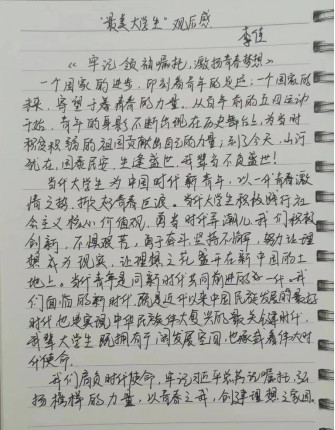 "最美大学生"观后感
李佳
《牢记领袖嘱托,激扬青春梦想》
一个国家的进步,印刻着青年的足迹;一个国家的
未来,寄望于青春的力量。从百年前的五四运动
开始,青年的身影不断出现在历史舞台上,为当时
积贫积弱的祖国贡献出自己的力量;到了今天,山河
犹在,国泰民安,生逢盛世,我辈当不负盛世!
当代大学生为中国时代新青年,以一代青春激
情之扬,掀起青春巨浪。当代大学生积极践行社
会主义核心价值观,勇当时代弄潮儿,我们积极
创新,不惧艰苦,勇于奋斗,坚持不懈,努力让理
想成为现实,让理想之花盛开在新中国的土
地上。当代青年是同新时代共同前进的一代。我
们面临的新时代,既是近代以来中国民族发展的最好
时代,也是实现中华民族伟大复兴的最关键时代,
我辈大学生既拥有广阔发展空间,也承载着伟大时
代使命。
我们肩负时代使命,牢记习近平总书记嘱托,弘
扬榜样的力量,以青春之我,创建理想之家园。